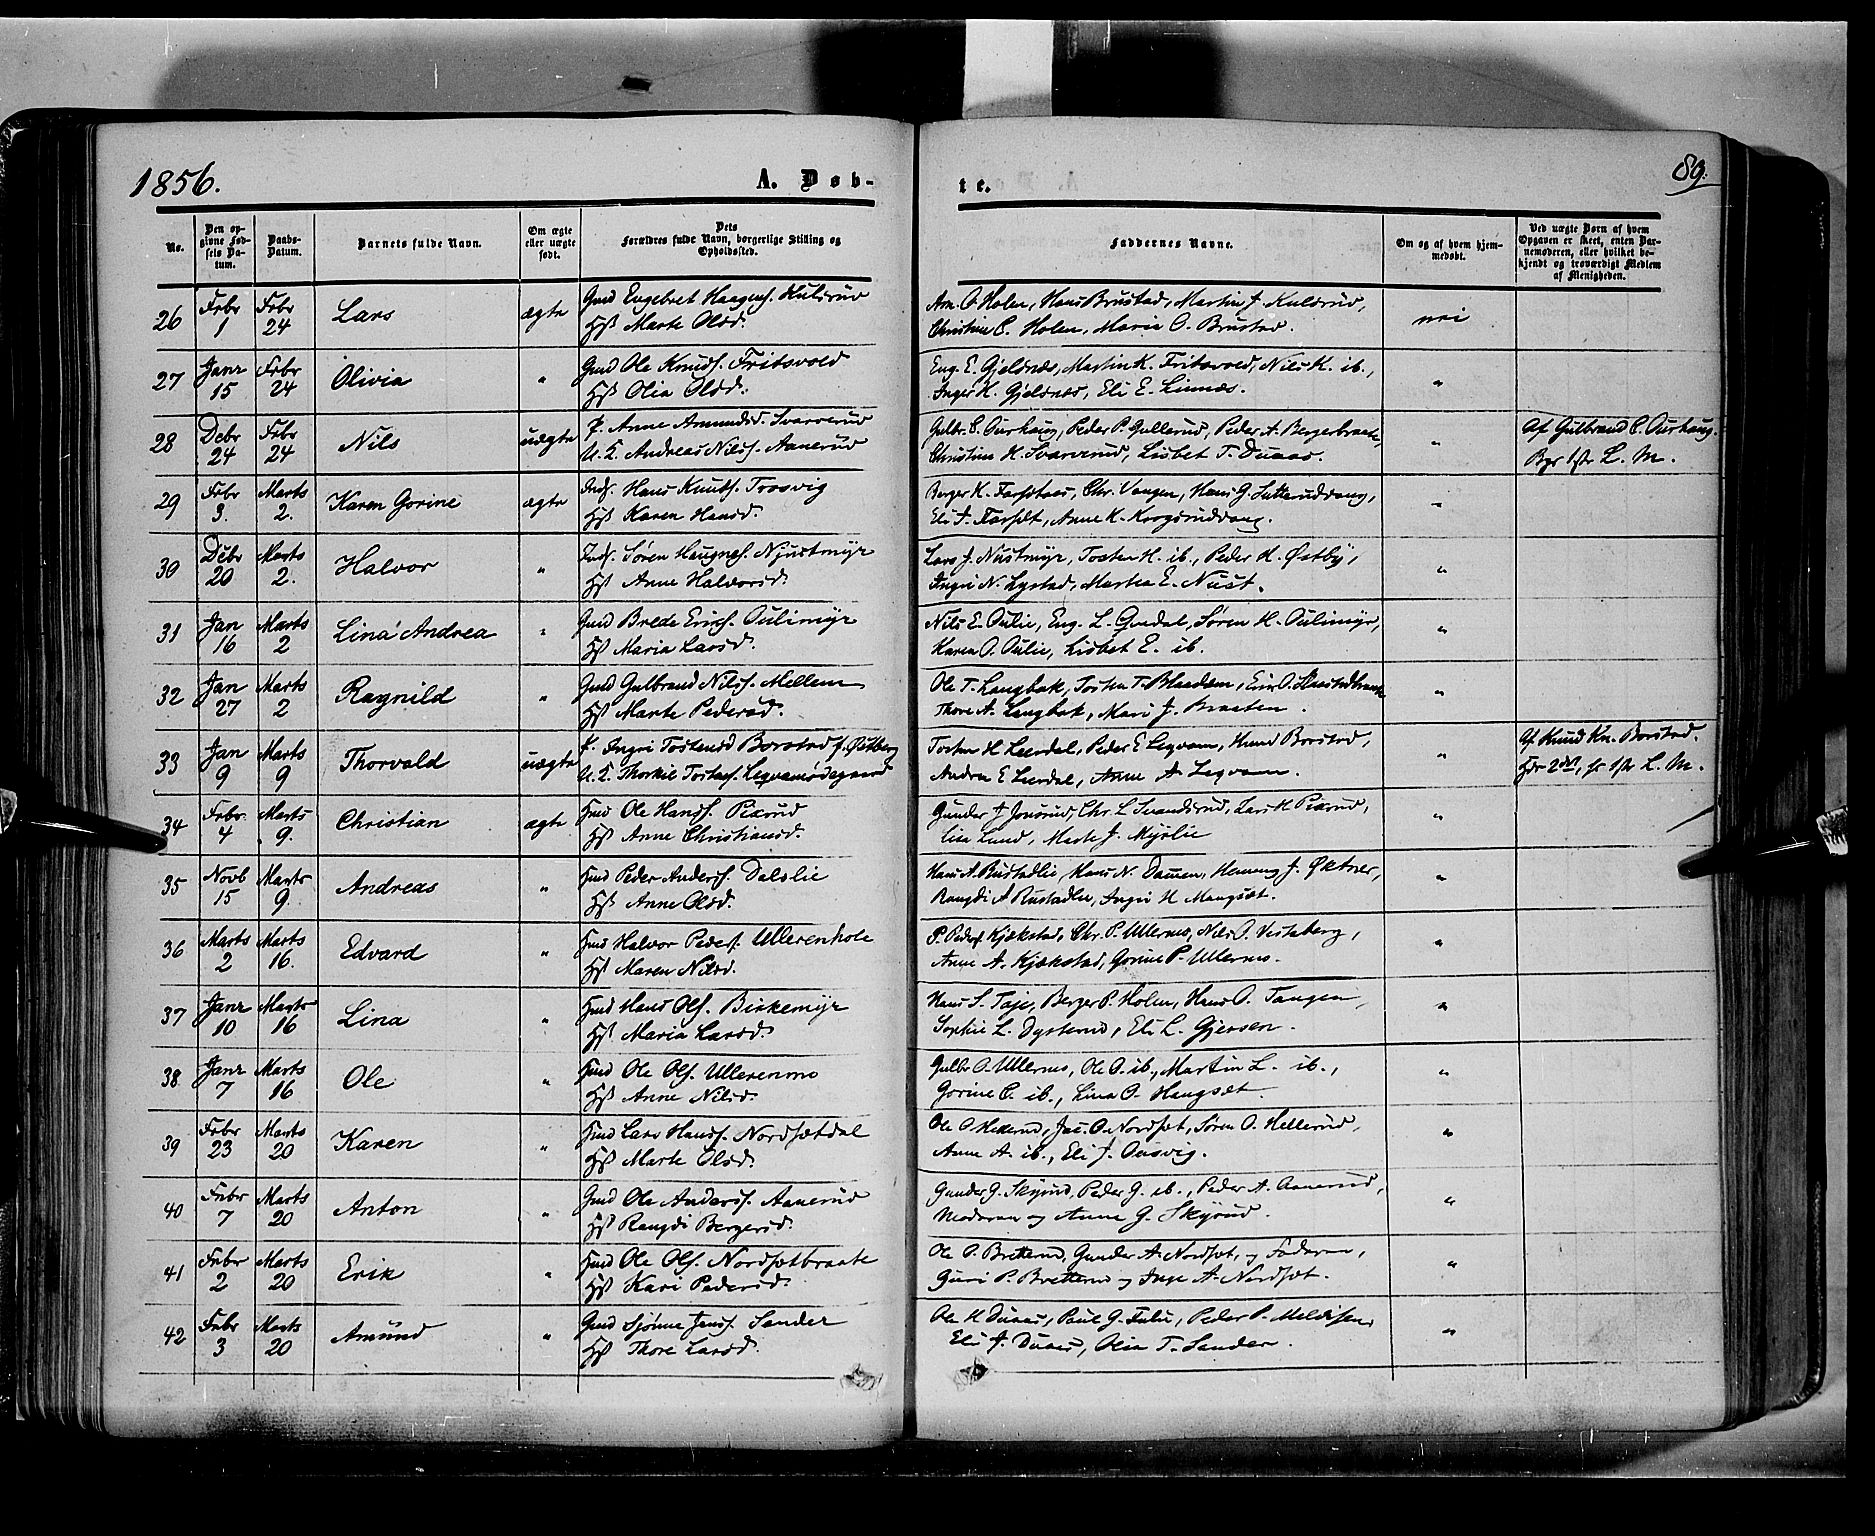 1856.
A. Døb-
te.
89.
No.
Den opgivne Fødsels Datum.
Daabs-Datum.
Barnets fulde Navn.
Om ægte eller uægte født.
Dets Forældres fulde Navn, borgerlige Stilling og Opholdssted.
Faddernes Navne.
Om og af hvem hjemmedøbt.
Ved uægte Børn af hvem Opgaven er skeet, enten Barnemoderen, eller hvilket bekjendt og troværdigt Medlem af Menigheden.
26 Febr 1 Febr 24 Lars ægte Gmd Engebret Haagens. Kulsrud
Hst Marte Olsd.
Arn. O. Holen, Hans Brustad, Martin J. Kulsrud,
Christine C. Holen, Marie O. Brustad. nei
27 Janr 15 Febr 24 Olivia " Gmd Ole Knuds. Fritsvold
Hst Olia Olsd.
Eng. E. Gjeldnæs, Martin K. Fritsvold, Nils K. ib.,
Inger K. Gjeldnæs, Eli E. Linnæs. "
28 Debr 24 Febr 24 Nils uægte P. Anne Amundsd. Svarverud
U. K. Andreas Nilss. Aanerud
Gulbr. C. Ourhaug, Peder P. Gullerud, Peder A. Bergebraate,
Christine K. Svarverud, Lisbet T. Duaas. "
Af Gulbrand C. Ourhaug.
Bgr 1ste L. M.
29 Febr 3. Marts 2. Karen Gorine ægte Inds. Hans Knuts. Trosvig
Hst Karen Hansd.
Berger K. Farsetaas, Chr. Vangen, Hans G. Sutterudvang,
Eli J. Farset, Anne K. Krogsrudvang. "
30 Debr 20 Marts 2. Halvor " Inds. Søren Haugnes. Njustmyr
Hst Anne Halvorsd.
Lars J. Nustmyr, Tosten H. ib., Peder H. Østby,
Ingri N. Lystad, Marthea E. Nust. "
31 Jan 16 Marts 2 Lina Andrea " Gmd Brede Erics. Oulimyr
Hst Maria Larsd.
Nils E. Oulie, Eng. L. Grudal, Søren H. Oulimyr,
Karen O. Oulie, Lisbet E. ib. "
32 Jan 27 Marts 2 Ragnild " Gmd Gulbrand Nilss. Mellem
Hst Marte Pedersd.
Ole T. Langbak, Tosten T. Blaadam,
Thore A. Langbak, Mari J. Braaten. "
33 Jan 9 Marts 9 Thorvald uægte P. Ingri Tostensd Borstad f. Østberg
U. K. Thorkil Tostens. Leqvamsødegaard
Tosten H. Leerdal, Peder E. Leqvam, Knud Borstad,
Andrea E. Leerdal, Anne A. Leqvam. "
Af Knud Kn. Borstad.
1ste L. M.
34 Febr 4 Marts 9. Christian ægte Hmd Ole Hanss. Pixrud
Hst Anne Christiansd.
Gunder J. Jonsrud, Chr. L. Svendsrud, Lars H. Pixrud,
Lise Lund, Marte J. Myrlie "
35 Novb 15 Marts 9. Andreas " Hmd Peder Anders. Dalslie
Hst Anne Olsd.
Hans A. Rustadlie, Hans N. Damen, Henning J. Øktner,
Rangdi A. Rustadlie, Ingri H. Mangsæt. "
36 Marts 2 Marts 16. Edvard " Hmd Halvor Peders. Ullerenhole
Hst Maren Nilsd.
P. Peders. Kjækstad, Chr. P. Ullernes, Nils O. Vestaberg,
Anne A. Kjækstad, Gorine P. Ullernes. "
37 Janr 10 Marts 16 Lina " Hmd Hans Ols. Birkemyr
Hst Maria Larsd.
Hans S. Taje, Berger P. Holen, Hans O. Tangen,
Sophie L. Dysterud, Eli L. Gjersøen. "
38 Janr 7 Marts 16 Ole " Hmd Ole Ols. Ullerenmo
Hst Anne Nilsd.
Gulbr. O. Ullernes, Ole O. ib., Martin L. ib.,
Gorine C. ib., Lina O. Haugsæt. "
39 Febr 23 Marts 20 Karen " Hmd Lars Hanss. Nordsetdal
Hst Marte Olsd.
Ole O. Hellerud, Jac. O. Nordset, Søren O. Hellerud,
Anne A. ib., Eli J. Ousvig. "
40 Febr 7 Marts 20 Anton " Gmd Ole Anders. Aanerud
Hst Rangdi Bergersd.
Gunder G. Skyrud, Peder G. ib., Peder A. Aanerud,
Moderen og Anne G. Skyrud. "
41 Febr 2 Marts 20 Erik " Hmd Ole Ols. Nordsetbraate
Hst Kari Pedersd.
Ole P. Bretterud, Gunder A. Nordset, og Faderen,
Guri P. Bretterud og Inge A. Nordset. "
42 Febr 3 Marts 20 Amund " Gmd Sjønne Jens. Sander
Hst Thore Larsd.
Ole K. Duaas, Paul G. Fulu, Peder P. Meldisen,
Eli J. Duaas, Olia T. Sander. "